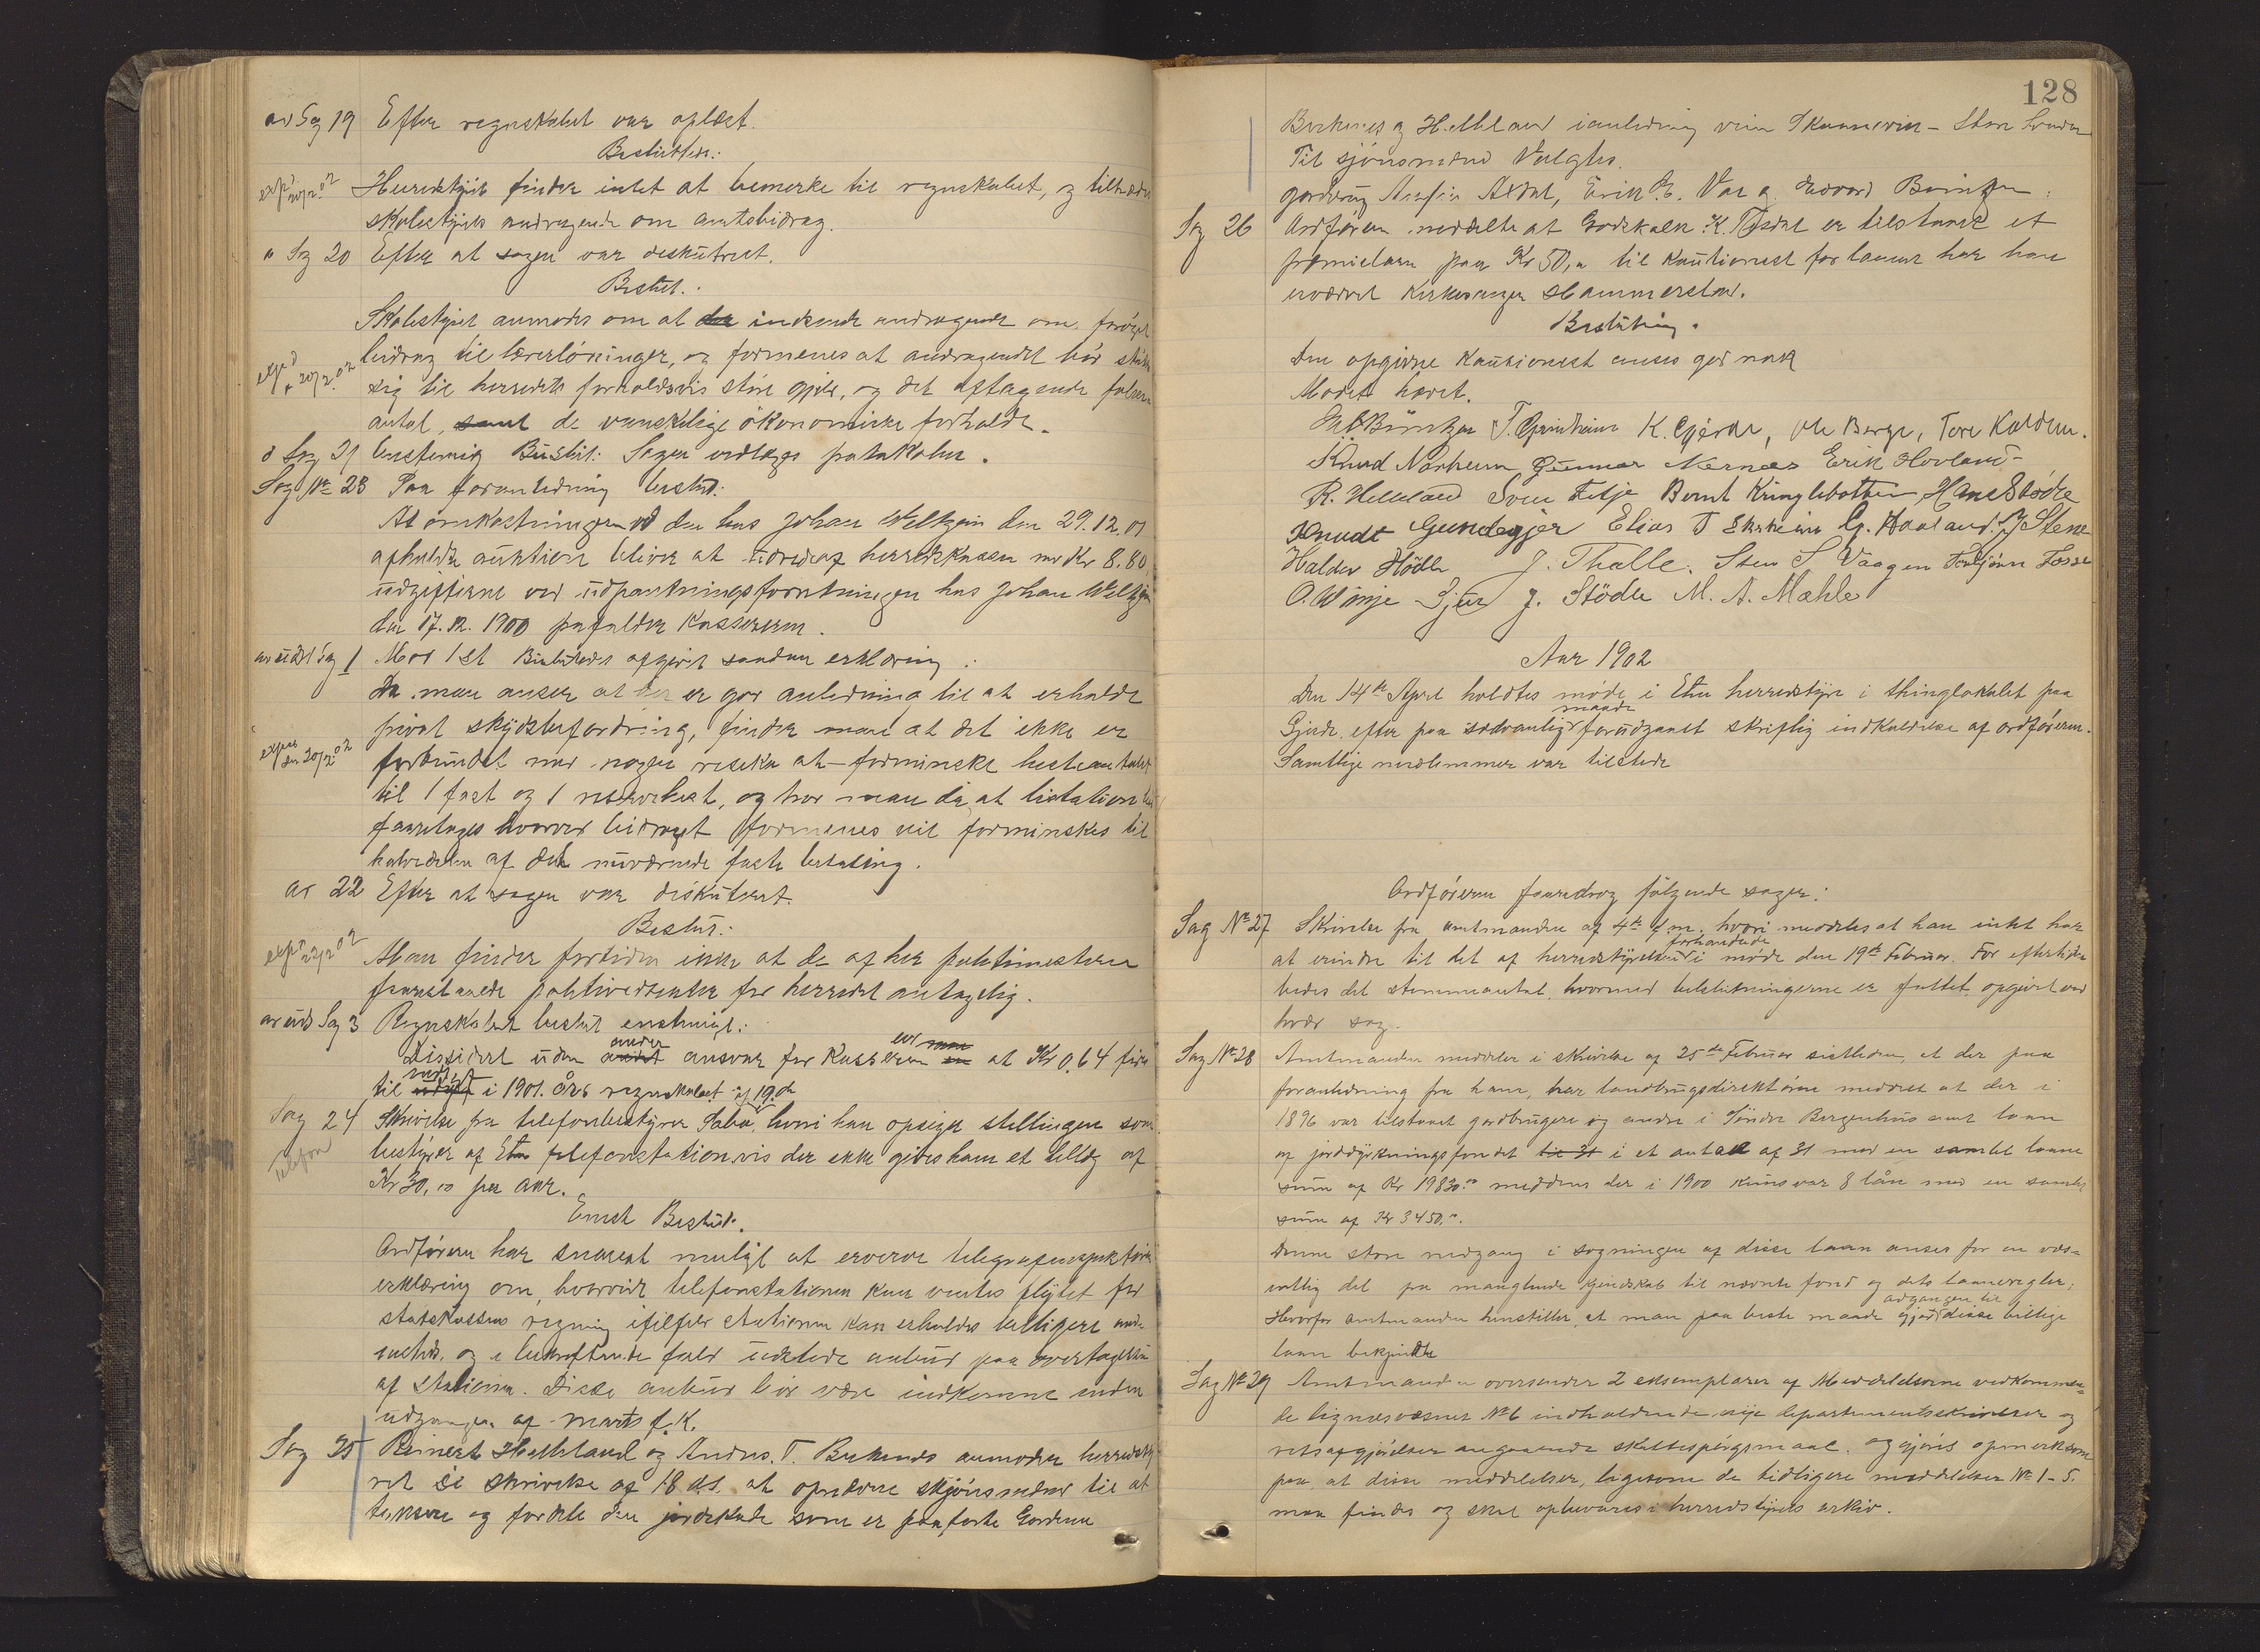 ad Sag 19 Efter regnskabet var oplæst.
Besluttedes:
expd 20/2.02 Herredstyret finder intet at bemerke til regnskabet, og tiltræder
skolestyrets andragende om amtsbidrag.
" Sag 20 Efter at sagen var diskuteret.
Beslut.:
Skolestyret anmodes om at indsende andragende om forøget
bidrag til lærerlønninger, og formenes at andragendet bør støtte
expd 20/2.02 sig til herredets forholdsvis store gjeld, og det aftagende folke-
antal, samt de vanskelige økonomiske forholde.
" Sag 21 Enstemig Beslut: Sagen vedtages protokolen.
Sag No 23 Paa foranledning beslut:
At omkostningen ved den hos Johan Weltzin den 29.12.01
afholdte auktion bliver at udrede af herredskassen med Kr 8.80,
udgifterne ved udpantningsforretningen hos Johan Weltzin
den 17.12. 1900 paafalder Kassereren.
ad uds Sag 1 Mod 1 st Besluttedes afgivet saadan erklæring:
Da man anser at her er god anledning til at erholde
privat skydsbefordring, finder man at det ikke er
expd den 20/2.02 forbundet med nogen risiko at forminske hesteantallet
til 1 fast og 1 reservehest, og tror man da, at licitation
foretages hvorved bidraget formenes vil forminskes til
halvdelen af den nuværende faste betaling.
ad 22 Efter at sagen var diskuteret.
Beslut.:
expd 22/2 02 Man finder fortiden ikke at de af her
foreslaaede for herredet antagelig.
ad uds Sag 3 Regnskabet beslut enstemigt:
Desideret uden andet ansvar for Kassereren at Kr 0.64 føres
til i 1901. Års regnskabet af 19. ds
Sag 24 Skrivelse fra telefonbestyrer Sabø, hvori han opsiger stillingen som
Telefon bestyrer af Etne telefonstation vis der ikke gives ham et tillæg af
Kr 30,00 per aar.
Enst Beslut.
Ordføreren har snarest muligt at erverve telegrafinspektørens
erklæring om, hvorvidt telefonstationen kan ventes flyttet for
statskassens regning ifald stationen kan erholdes billigere
, og i bekræftende fald indhente anbud paa overtagelsen
af stationen. Disse anbud bør være indkomne inden
udgangen af marts f. K.
Sag 25 Reinert Helleland og Andres. T. Berkenes anmoder herredsty-
ret i skrivelse af 18 ds. at opnævne skjønsmænd til at
taksere og fordele den jordskade som er paaførte Gardene
128
Berkenes og Helleland i anledning veien Skaanevik - Store
Til sjønsmænd Valgtes.
gardbrug Axdal, Erik E. Vae og Edvard Bentzen.
Sag 26 Ordføreren meddelte at Godskalk K. Tesdal er tilstaaet et
præmielaan paa Kr 50,- til Kautionist for laanet har han
erværvet Kirkesanger Hammersland.
Beslutning.
Den opgivne Kautionist anses god nok
Mødet hævet.
Büntzen T. Grindheim K. Gjerde, Ole Berge, Tore Kaldem.
Knud Norheim Gunnar Nernæs Erik Hovland
R. Helleland Sven Fitje Bernt Kringlebotten Hans Stødle
Knudt Gundegjer Elias T Skaheim G. Haaland. J Stene
Halder Hödle J. Thalle. Sten S Vaagen Torbjørn Fosse
O. Winje J. Stödle M. A. Mæhle
Aar 1902
Den 14de April holdtes møde i Etne herredstyre i thinglokalet paa
Gjerde, efter paa sædvanlig maade forudgaaet skriftlig indkaldelse af ordføreren.
Samtlige medlemmer var tilstede
Ordføreren foredrog følgende sager:
Sag No 27 Skrivelse fra amtmanden af 4de f.m. hvori meddeles at han intet har
at erindre til det af herredstyrelsen forhandlede i møde den 19de Februar. For eftertiden
bedes det stemmeantal, hvormed beslutningerne er fattet, opgivet ved
hver sag.
Sag No 28 Amtmanden meddeler i skrivelse af 25de Februar sistleden, at der paa
foranledning fra ham, har landbrugsdirektøren meddelt at der i
1896 var tilstaaet gardbrugere og andre i Søndre Bergenhus amt laan
af jorddyrkningsfondet til 31 i et antal af 31 med en samlet laane
sum af Kr 19830.00 meddens der i 1900 kuns var 8 lån med en samlet
sum af Kr 3450.00.
Denne store nedgang i søgningen af disse laan anses for en væs-
entlig del paa manglende kjendskab til nævnte fond og dets laaneregler,
Hvorfor amtmanden henstiller, at man paa beste maade gjør adgangen til disse billige
laan bekjendt
Sag No 29 Amtmanden oversender 2 eksemplarer af Meddelelserne vedkommen-
de ligningsvæsnet No 6 indholdende nye departementsskrivelser og
retsafgjørelser angaaende skattespørgsmaal. og gjøres opmerksom
paa at disse meddelelser, ligesom de tidligere meddelelser No 1-5.
maa findes og skal opbevares i herredstyrets arkiv.